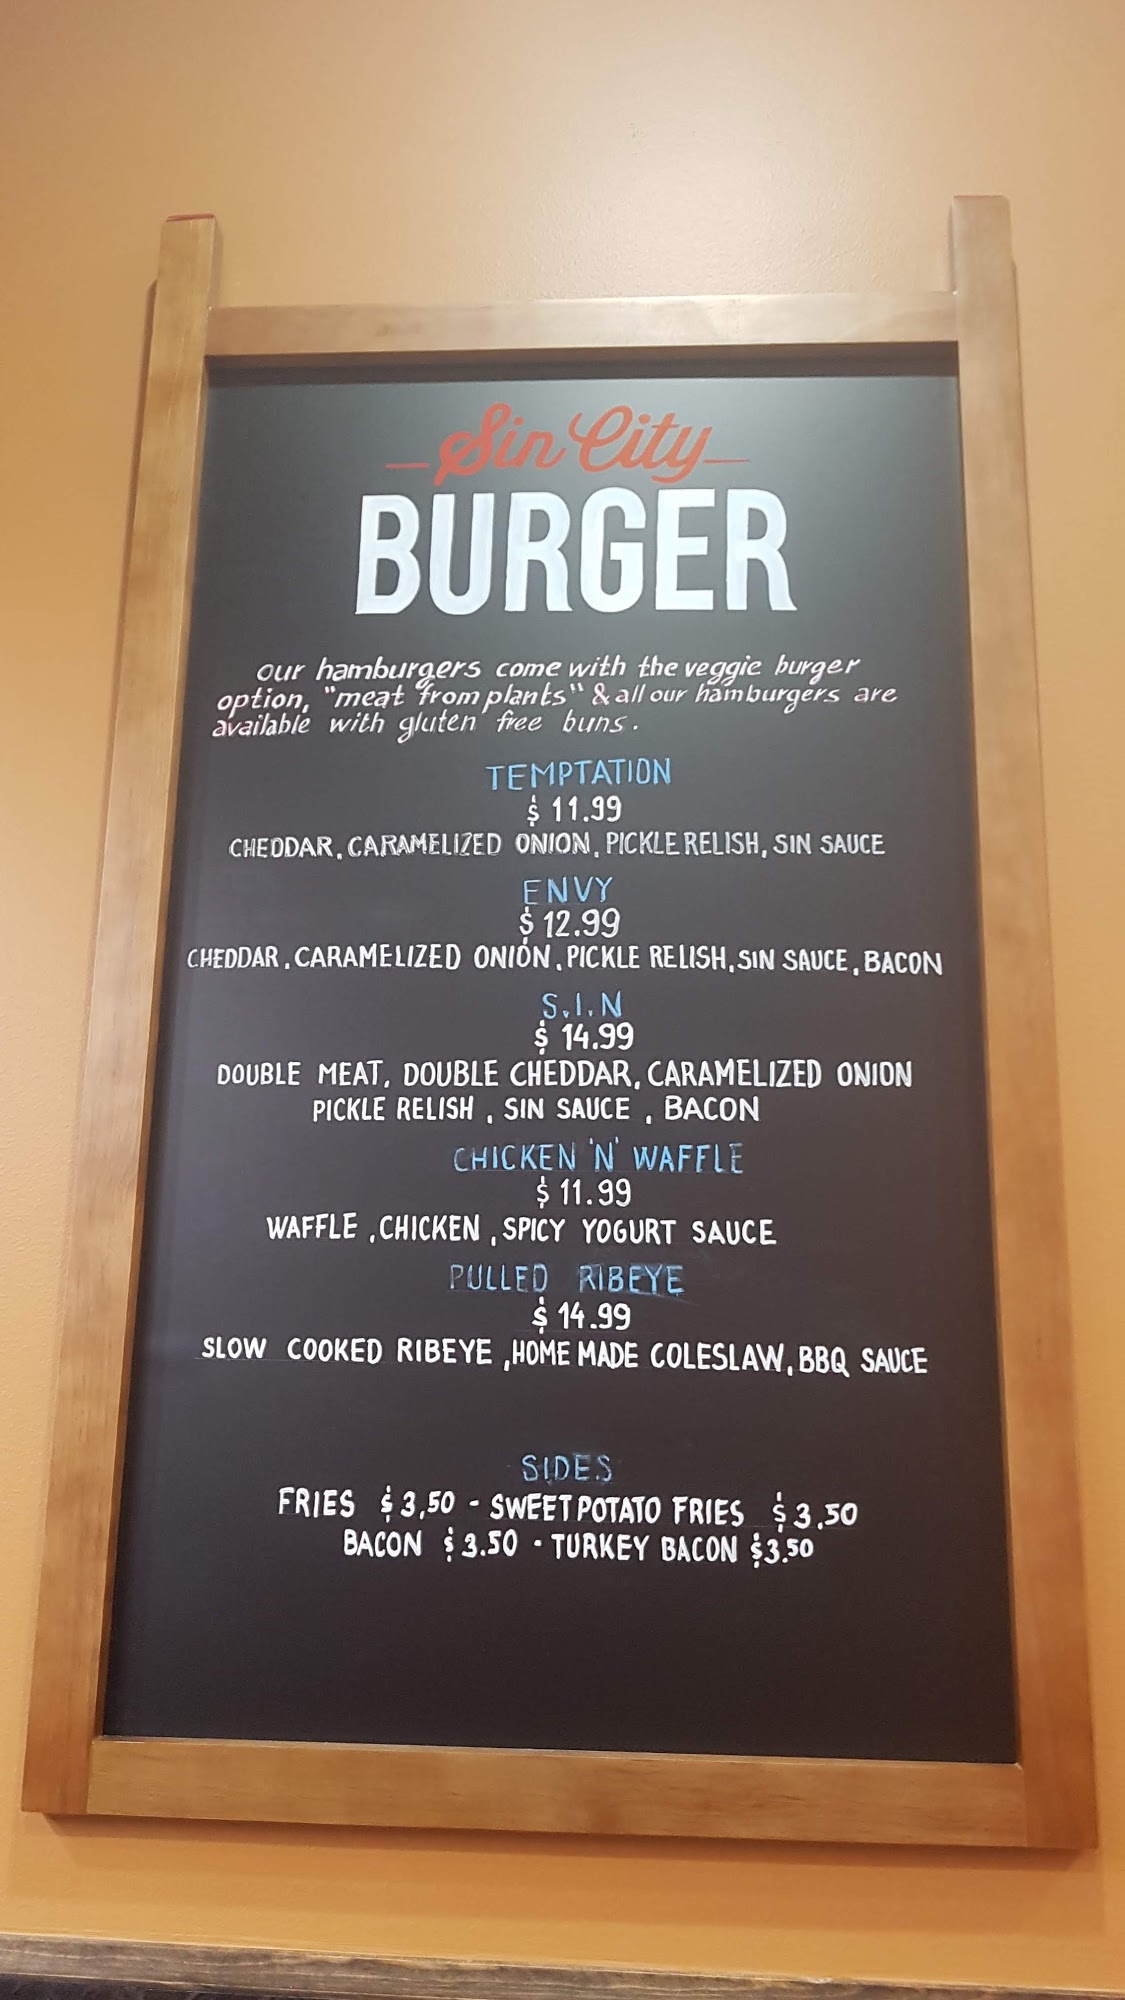 Sin City
BURGER
our hamburgers come with the veggie burger
option, "meat from plants" & all our hamburgers are
available with gluten free buns.
TEMPTATION
$ 11.99
CHEDDAR, CARAMELIZED ONION, PICKLE RELISH, SIN SAUCE
ENVY
$ 12.99
CHEDDAR, CARAMELIZED ONION, PICKLE RELISH, SIN SAUCE, BACON
S.I.N
$ 14.99
DOUBLE MEAT, DOUBLE CHEDDAR, CARAMELIZED ONION
PICKLE RELISH, SIN SAUCE, BACON
CHICKEN 'N' WAFFLE
$ 11.99
WAFFLE, CHICKEN, SPICY YOGURT SAUCE
PULLED RIBEYE
$ 14.99
SLOW COOKED RIBEYE, HOME MADE COLESLAW, BBQ SAUCE
SIDES
FRIES $3,50 - SWEET POTATO FRIES $3.50
BACON $3.50 - TURKEY BACON $3.50